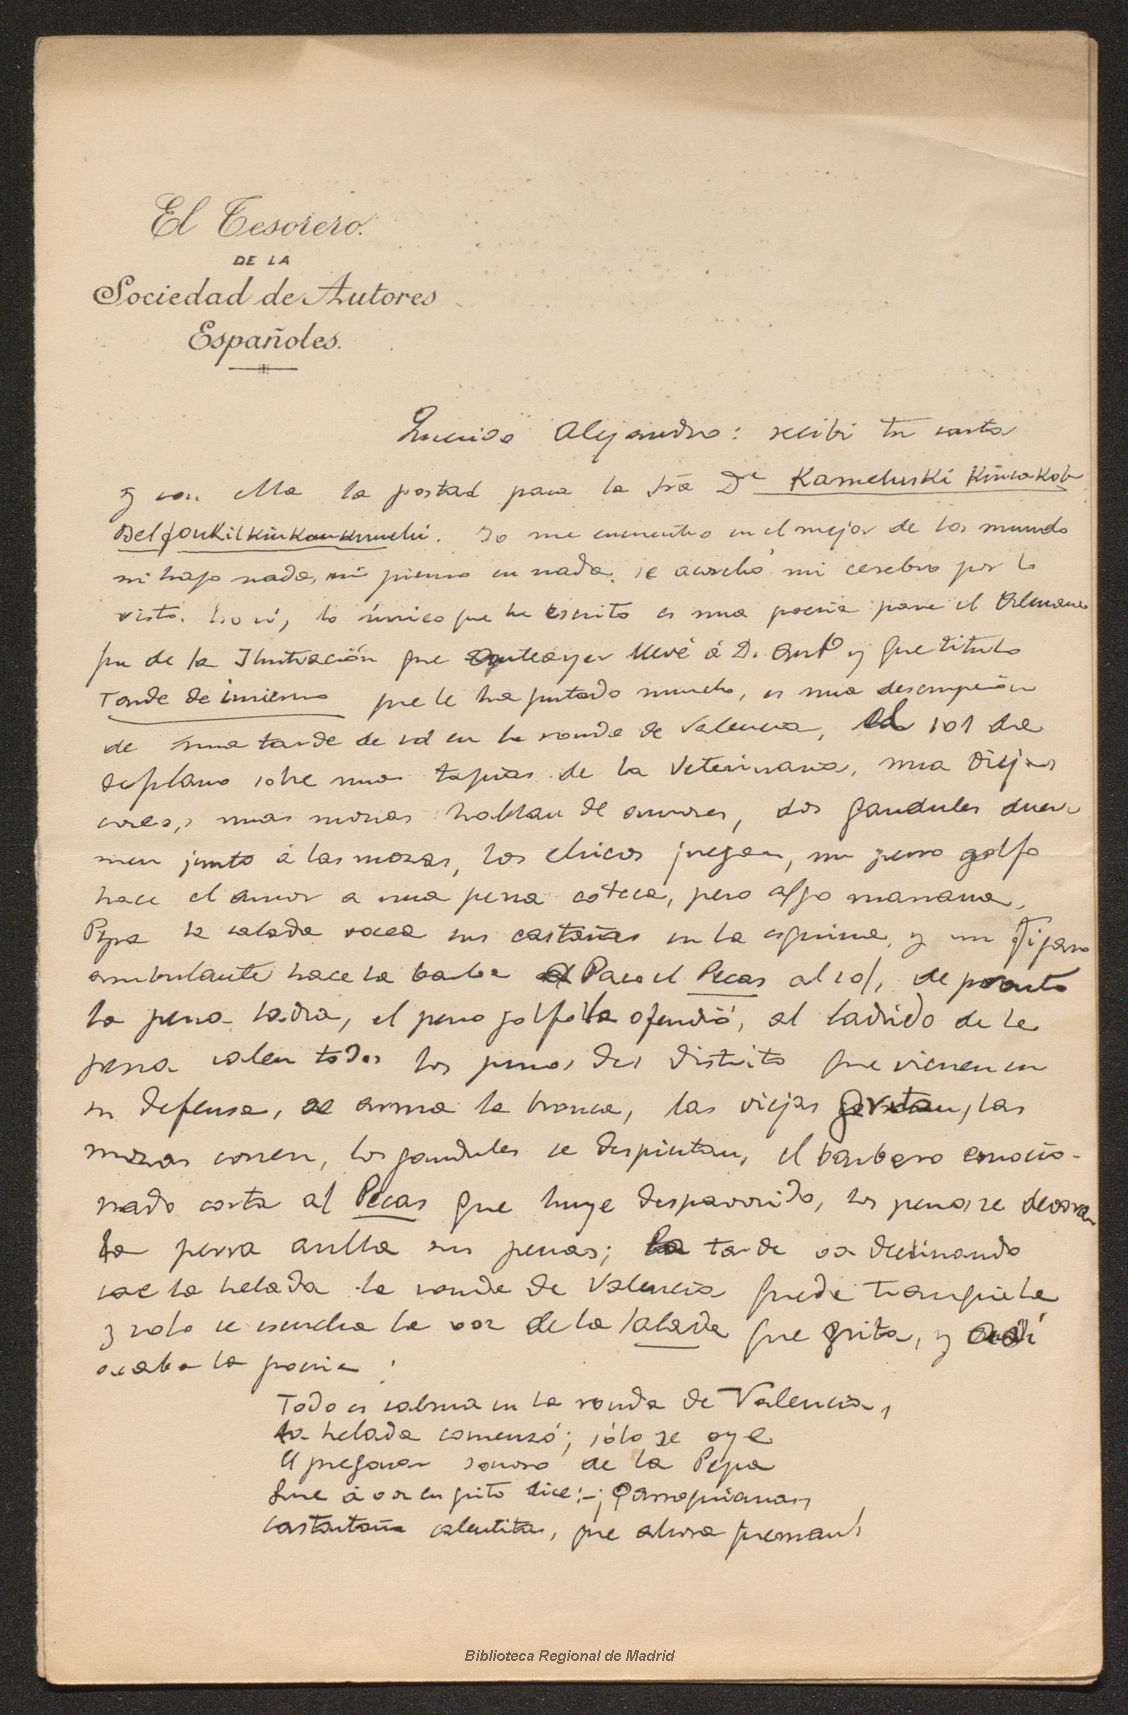 El Tesorero.
DE LA
Sociedad de Autores
Españoles.
Querido Alejandro: recibí tu carta
y con ella la postal para la Sra Dª Kameluski
. Yo me encuentro en el mejor de los mundos
ni hago nada, ni pienso en nada. se acorchó mi cerebro por lo
visto. Eso sí, lo único que he escrito es una poesía para el Almana
que de la Ilustración que anteayer llevé á D. Antº y que titulo
Tarde de invierno que le ha gustado mucho, es una descripción
de una tarde de sol en la ronda de Valencia, el sol da
de plano sobre unas tapias de la Veterinaria, una viejas
unas mozas hablan de amores, dos gandules duer-
men junto á las mozas, los chicos juegan, un perro golfo
hace el amor a una perra coteca, pero algo marrana,
Pepa la salada vocea sus castañas en la esquina, y un fígaro
ambulante hace la barba á Paco el Pecas al sol, de pronto
la perra ladra, el perro golfo la ofendió, al ladrido de la
perra salen todos los perros del distrito que vienen en
su defensa, se arma la bronca, las viejas gritan, las
mozas corren, los gandules se despiertan, el barbero emocio-
nado corta al Pecas que huye despavorido, los perros se devoran
la perra aulla sus penas; la tarde va declinando
cae la helada la ronda de Valencia queda tranquila
y solo se escucha la voz de la salada que grita, y así
acaba la poesía:
Todo es calma en la ronda de Valencia,
la helada comenzó; sólo se oye
el pregonar sonoro de la Pepa
Que á voz en grito dice:—¡Parroquianas,
castañas calentitas, que ahora queman!
Biblioteca Regional de Madrid